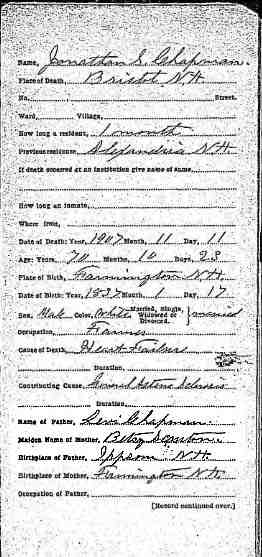 Name, Jonathan S. Chapman.
Place of Death, Bristol N.H.
No. Street.
Ward, Village,
How long a resident, 1 month
Previous residence, Alexandria N.H.
If death occurred at an institution give name of same,
How long an inmate,
Where from,
Date of Death: Year, 1907 Month, 11 Day, 11
Age: Years, 70 Months, 10 Days, 23
Place of Birth, Farmington N.H.
Date of Birth: Year, 1837 Month, 1 Day, 17
Sex, Male Color, White Married, Single, Widowed or Divorced. } married
Occupation, Farmer
Cause of Death, Heart Failure
Duration,
Contributing Cause, General Sclerosis
Duration,
Name of Father, Levi Chapman.
Maiden Name of Mother, Betsy
Birthplace of Father, Eppsom N.H.
Birthplace of Mother, Farmington N.H.
Occupation of Father,
[Record continued over.]